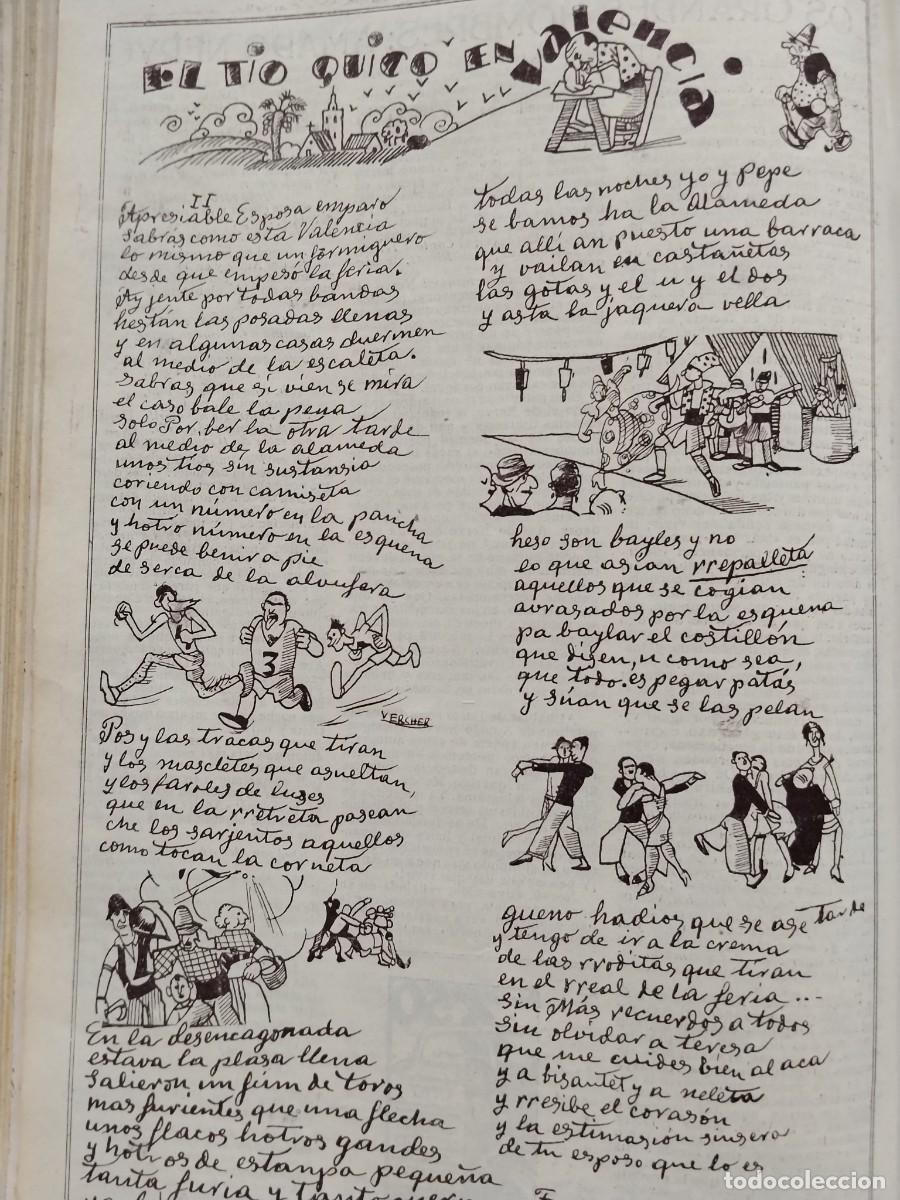 EL TIO QUICO EN Valencia.
II
Apresiable Esposa emparo
Sabrás como esta Valencia
lo mismo que un formiguero
desde que empesó la feria.
Ay jente por todas bandas
hestán las posadas llenas
y en algunas casas duermen
al medio de la escaleta.
Sabrás que si vien se mira
el caso bale la pena
solo Por ber la otra tarde
al medio de la alameda
unos tíos sin sustansia
coriendo con camiseta
con un número en la pancha
y hotro número en la esquena
se puede benir a pie
de serca de la alvufera
3
VERCHER
Pos y las tracas que tiran
y los mascletes que asueltan,
y los faroles de luses
que en la rretreta pasean
che los sarjentos aquellos
como tocan la corneta
En la desencagonada
estava la plasa llena
salieron un fium de toros
mas furientes que una flecha
unos flacos hotros gandes
y hotros de estampa pequeña
tanta furia y tanto
todas las noches yo y Pepe
se bamos ha la alameda
que allí an puesto una barraca
y vailan en castañetas
las gotas y el u y el dos
y asta la jaquera vella
heso son bayles y no
lo que asían rrepalleta
aquellos que se cogían
avrasados por la esquena
pa baylar el costillón
que disen, u como sea,
que todo es pegar patás
y súan que se las pelan
gueno hadios que se ase tarde
y tengo de ir a la crema
de las rroditas que tiran
en el rreal de la feria...
Sin Más recuerdos a todos
sin olvidar a teresa
que me cuides bien al aca
y a bisantet y a neleta
y rresibe el corasón
y la estimasión sinsera
de tu esposo que lo es
todocoleccion